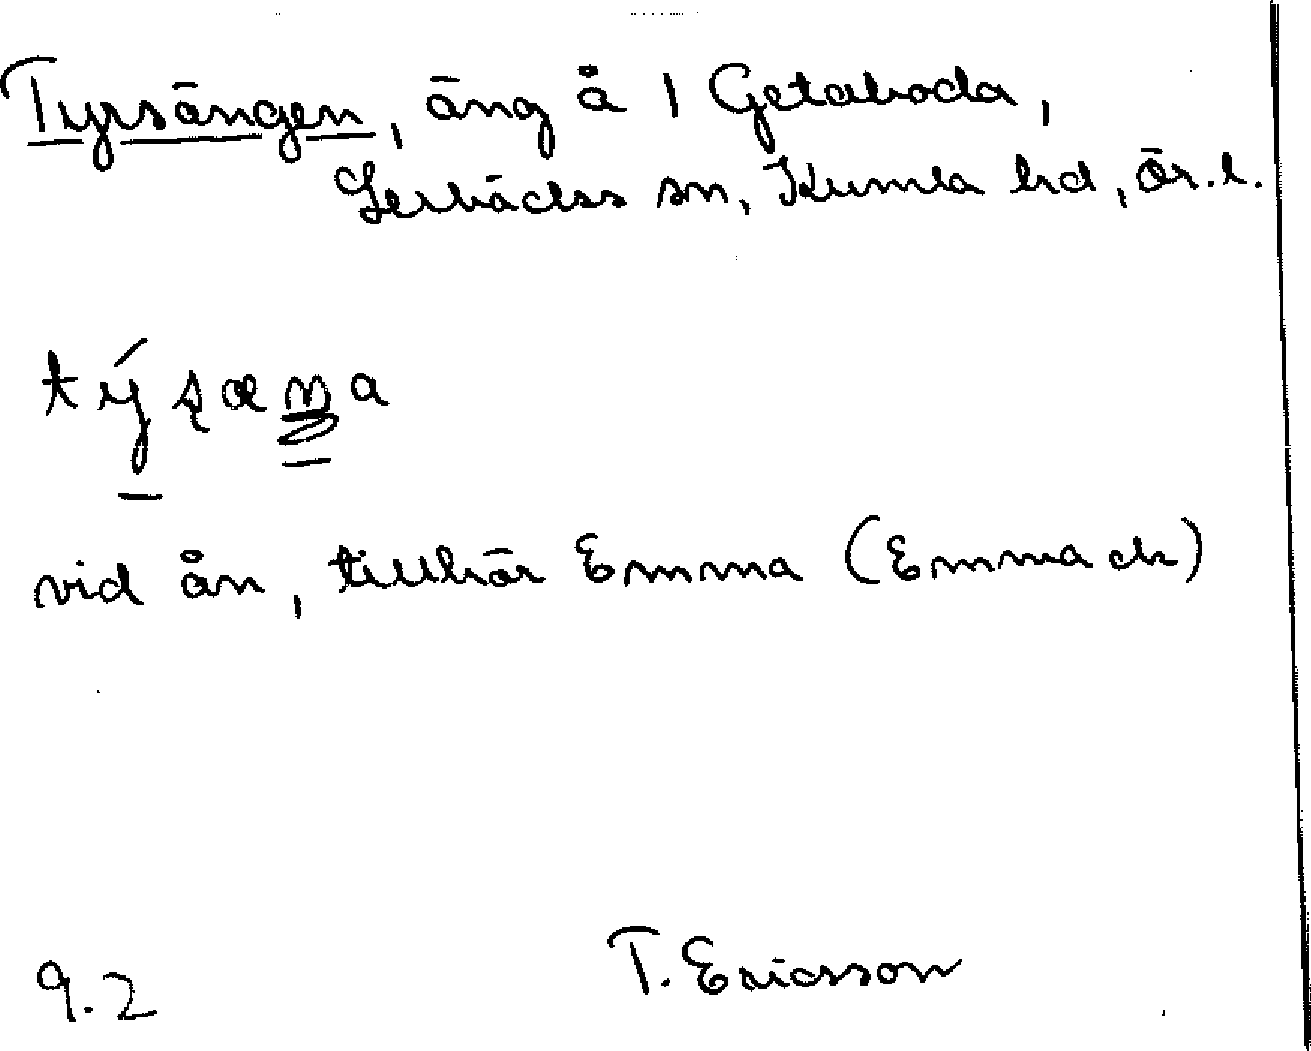 Tyrsängen, äng å 1 Getaboda,
Lerbäcks sn, Kumla hd, Ör.l.
vid ån, tillhör Emma (Emmach)
9.2 T. Ericsson